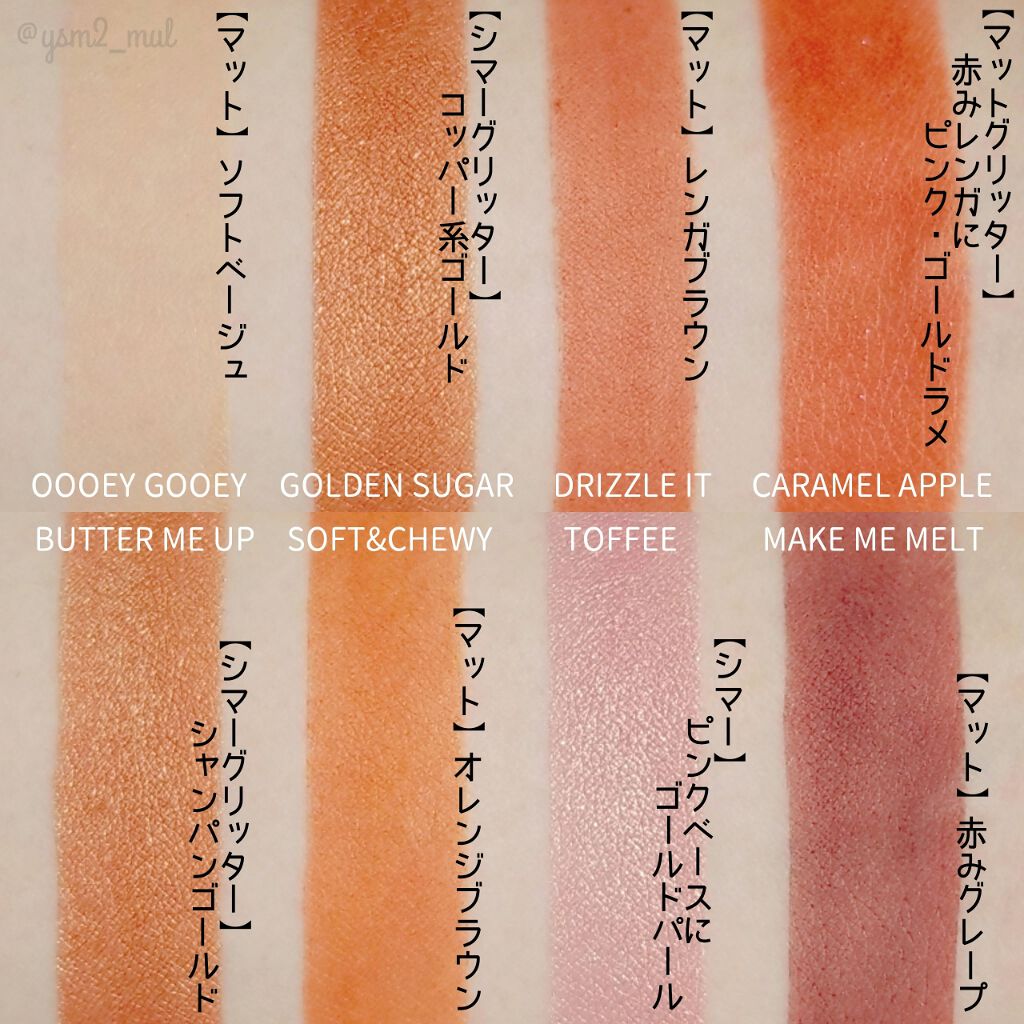 @ysm2_mul
【マット】ソフトベージュ
OOOEY GOOEY
【シマーグリッター】
コッパー系ゴールド
GOLDEN SUGAR
【マット】レンガブラウン
DRIZZLE IT
【マットグリッター】
赤みレンガに
ピンク・ゴールドラメ
CARAMEL APPLE
BUTTER ME UP
【シマーグリッター】
シャンパンゴールド
SOFT&CHEWY
【マット】オレンジブラウン
TOFFEE
【シマー】
ピンクベースに
ゴールドパール
MAKE ME MELT
【マット】赤みグレープ